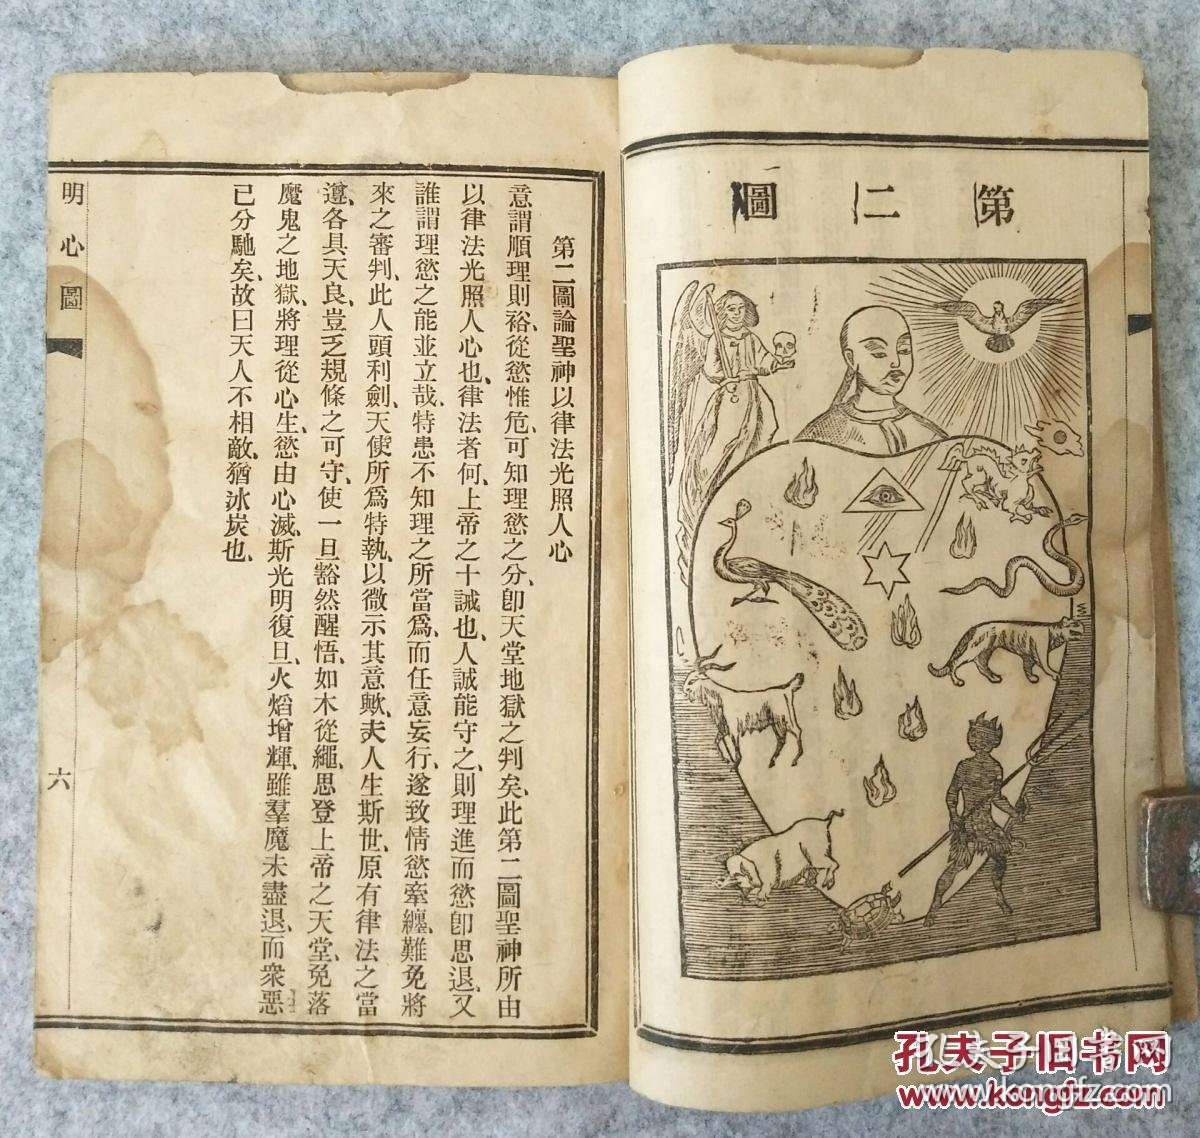 第二圖
第二圖論聖神以律法光照人心
意謂順理則裕、從慾惟危、可知理慾之分、卽天堂地獄之判矣、此第二圖聖神所由
以律法光照人心也、律法者何、上帝之十誡也、人誠能守之、則理進而慾卽思退、又
誰謂理慾之能並立哉、特患不知理之所當爲、而任意妄行、遂致情慾牽纏、難免將
來之審判、此人頭利劍、天使所爲特執、以微示其意歟、夫人生斯世、原有律法之當
遵、各具天良、豈乏規條之可守、使一旦豁然醒悟、如木從繩、思登上帝之天堂、免落
魔鬼之地獄、將理從心生、慾由心滅、斯光明復旦、火焰增輝、雖羣魔未盡退、而衆惡
已分馳矣、故曰天人不相敵、猶冰炭也、
明心圖
六
孔夫子旧书网
www.kongfz.com